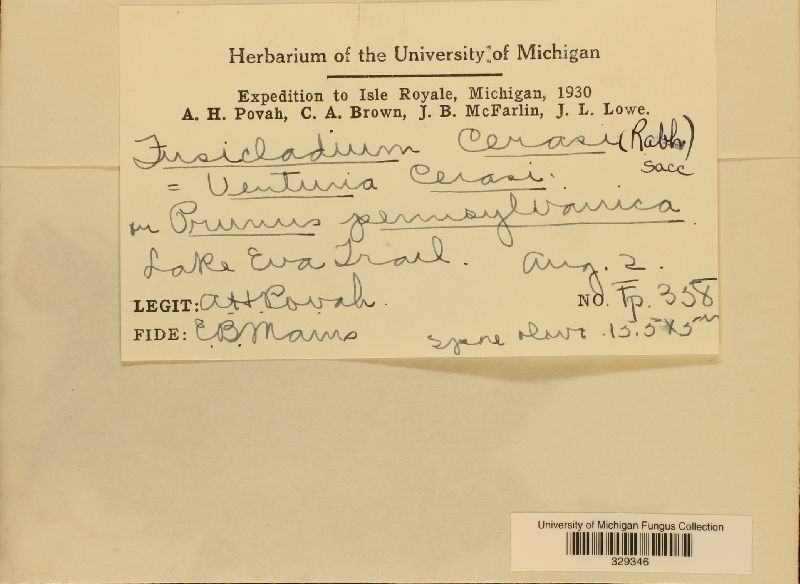 Herbarium of the University of Michigan
Expedition to Isle Royale, Michigan, 1930
A. H. Povah, C. A. Brown, J. B. McFarlin, J. L. Lowe.
Fusicladium Cerasi (Rabh) Sacc
= Venturia Cerasi.
on Prunus pennsylvanica
Lake Eva Trail. Aug. 2.
LEGIT: AH Povah. NO. Fp. 358
FIDE: E B Mains spore olive 15.5 x 5
University of Michigan Fungus Collection
329346